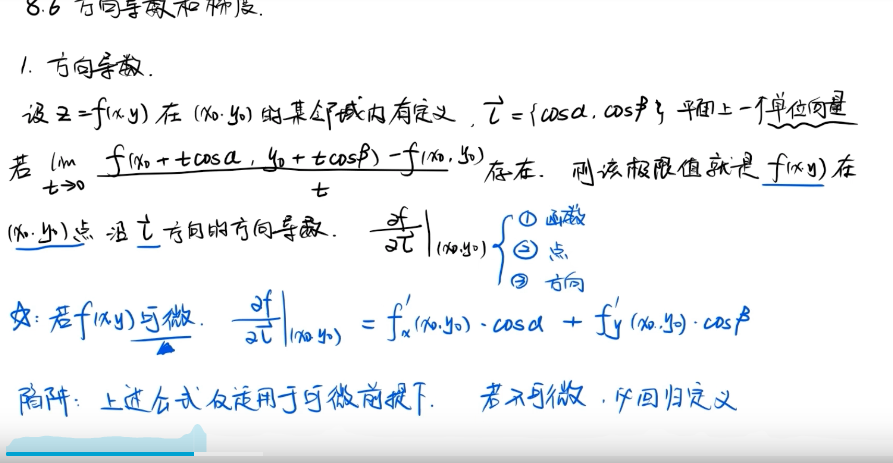 8.6 方向导数和梯度.
1. 方向导数.
设 z=f(x,y) 在 (x₀,y₀) 的某邻域内有定义, l⃗={cosα, cosβ} 平面上一个单位向量
若 lim_{t→0} [f(x₀+tcosα, y₀+tcosβ)-f(x₀,y₀)]/t 存在. 则该极限值就是 f(x,y) 在
(x₀,y₀)点 沿 l⃗ 方向的方向导数. ∂f/∂l⃗|(x₀,y₀) { ① 函数
② 点
③ 方向
☆: 若f(x,y)可微. ∂f/∂l⃗|(x₀,y₀) = f'x(x₀,y₀)·cosα + f'y(x₀,y₀)·cosβ
陷阱: 上述公式仅适用于可微前提下. 若不可微, 必回归定义